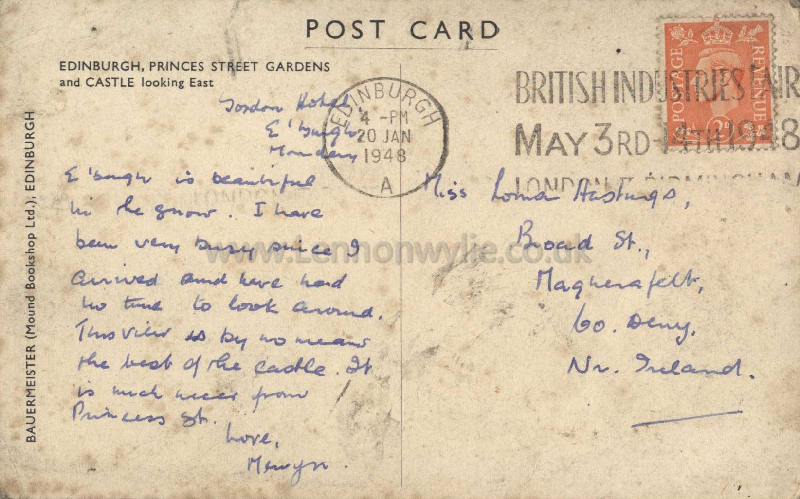 POST CARD
EDINBURGH, PRINCES STREET GARDENS
and CASTLE looking East
BAUERMEISTER (Mound Bookshop Ltd.), EDINBURGH
EDINBURGH
4 - PM
20 JAN
1948
A
BRITISH INDUSTRIES FAIR
MAY 3RD-14TH 1948
LONDON & BIRMINGHAM
POSTAGE
REVENUE
Gordon Hotel,
E'burgh,
Monday
E'burgh is beautiful
in the snow. I have
been very busy since I
arrived and have had
no time to look around.
This view is by no means
the best of the castle. It
is much nicer from
Princess St.
Love,
Mervyn.
Miss Lorna Hastings,
Broad St.,
Magherafelt,
Co. Derry,
Nr. Ireland.
www.Lennonwylie.co.uk